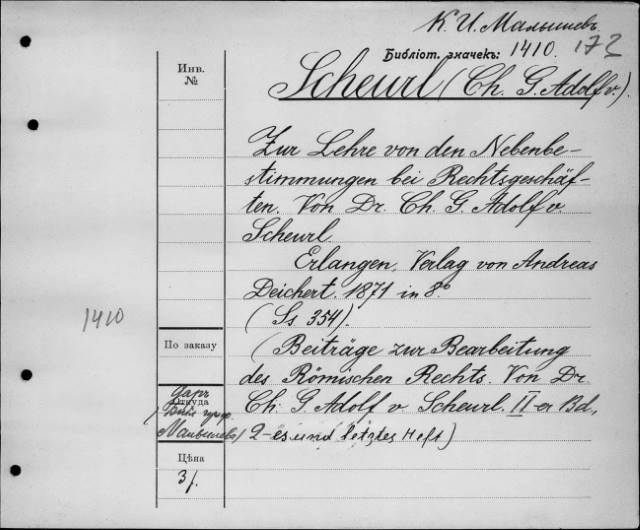 К. И. Малышевъ.
Библіот. значекъ: 1410. 172
Инв.
№
Scheurl (Ch. G. Adolf v.).
Zur Lehre von den Nebenbe-
stimmungen bei Rechtsgeschäf-
ten. Von Dr. Ch. G. Adolf v.
Scheurl.
Erlangen, Verlag von Andreas
Deichert. 1871 in 8.°
(Ss. 354).
1410
По заказу
(Beiträge zur Bearbeitung
des Römischen Rechts. Von Dr.
Ch. G. Adolf v. Scheurl. II-er Bd,
2-es und letztes Heft)
Даръ
Откуда
Малышева)
Цѣна
3 р.